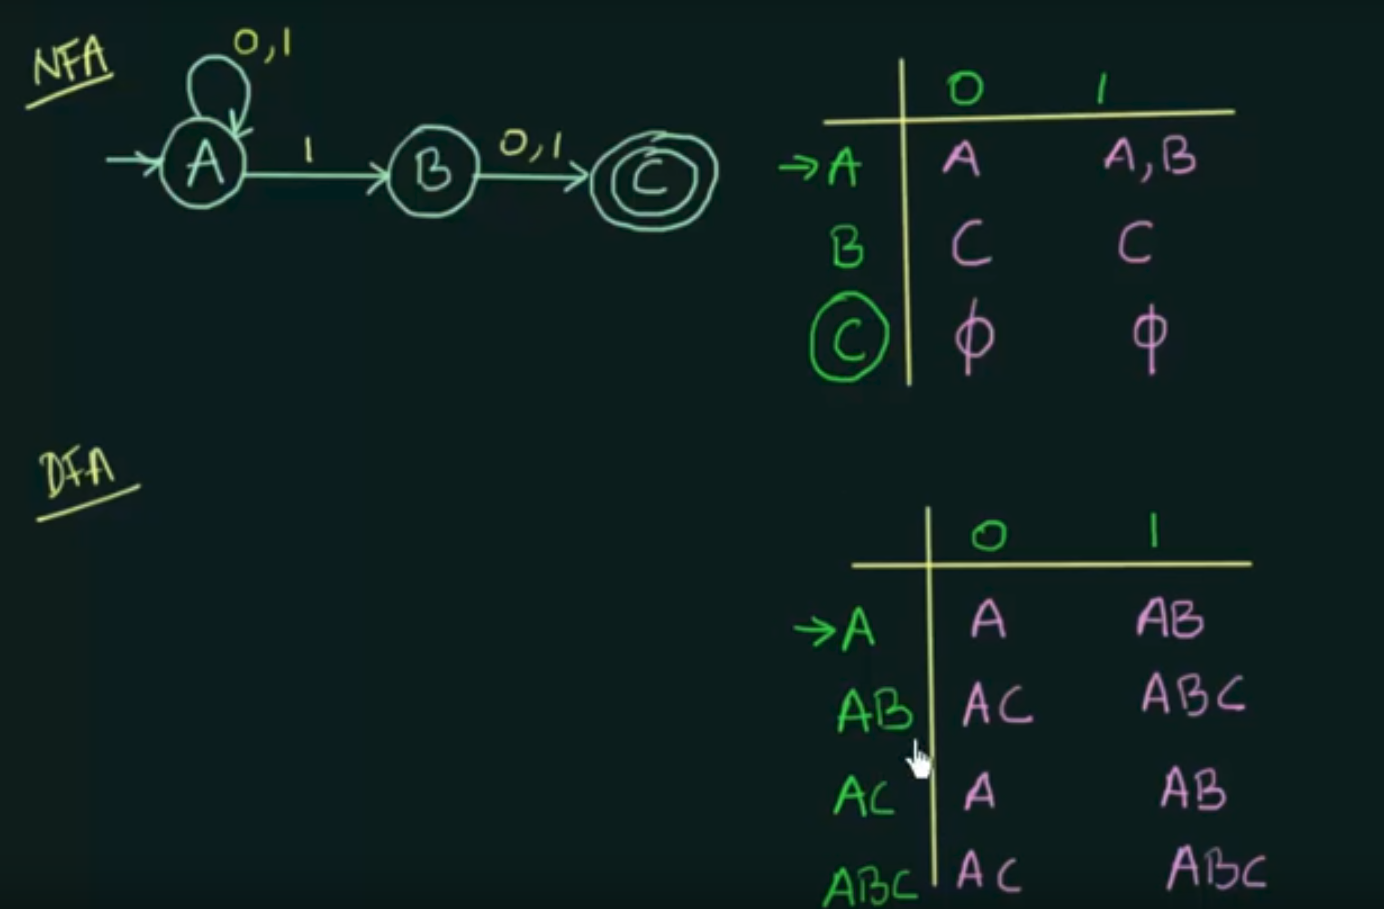 NFA
0,1
A 1 B 0,1 C
0 1
→A A A,B
B C C
C ϕ ϕ
DFA
0 1
→A A AB
AB AC ABC
AC A AB
ABC AC ABC